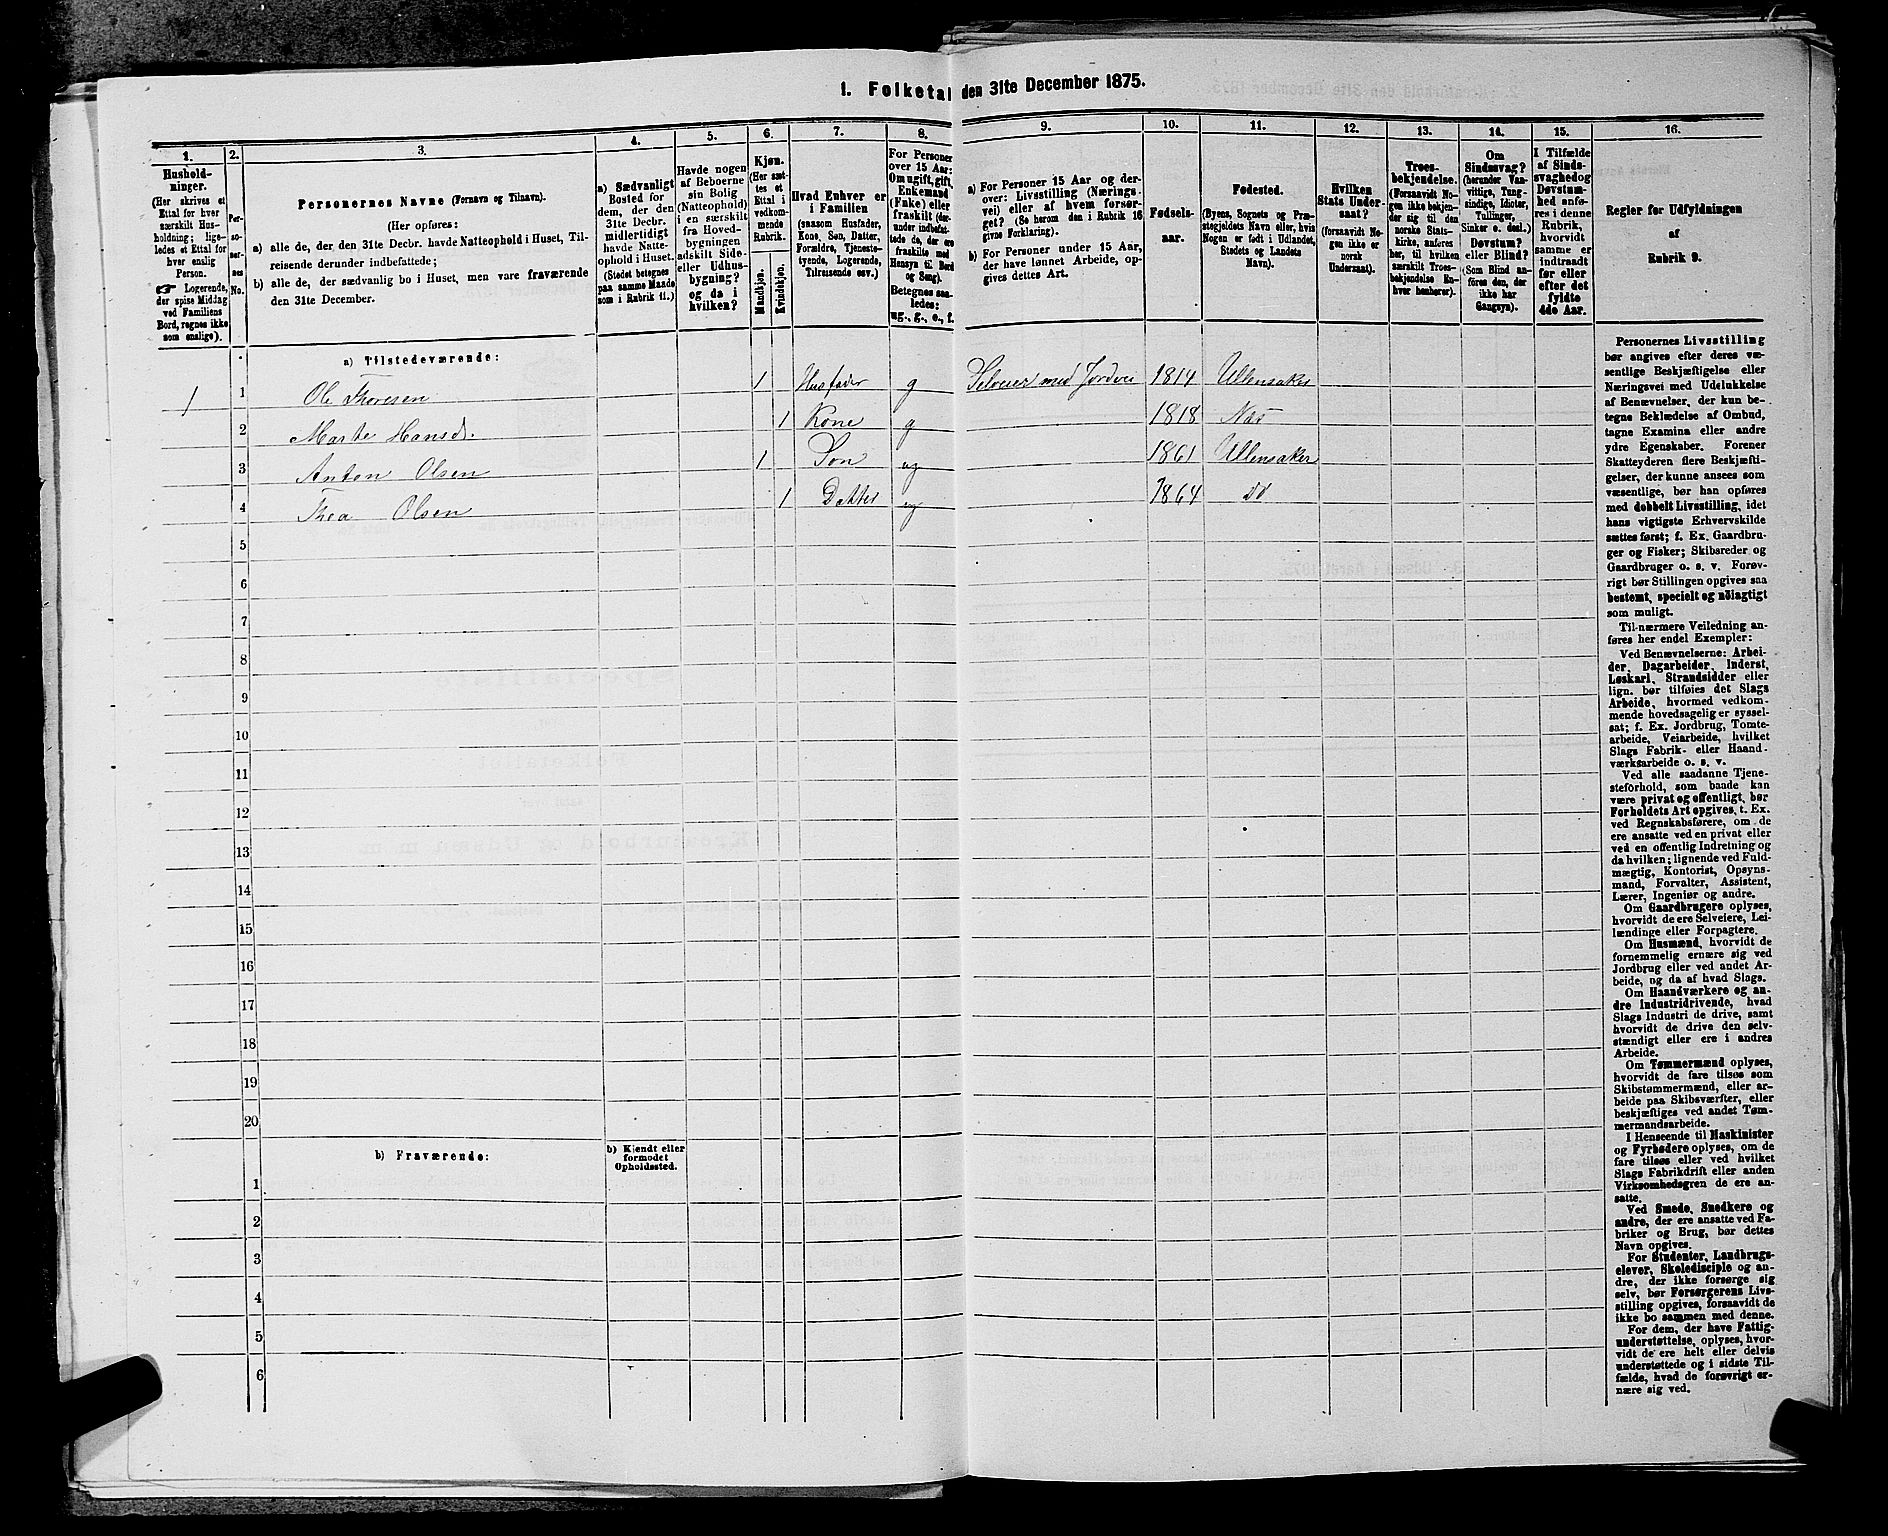 1. Folketal den 31te December 1875.
1.
Hushold-
ninger.
(Her skrives et
Ettal for hver
særskilt Hus-
holdning; lige-
ledes et Ettal for
hver enslig
Person.
☛ Logerende,
der spise Middag
ved Familiens
Bord, regnes ikke
som enslige).
2.
Per-
so-
ner-
nes
No.
3.
Personernes Navne (Fornavn og Tilnavn).
(Her opføres:
a) alle de, der den 31te Decbr. havde Natteophold i Huset, Til-
reisende derunder indbefattede;
b) alle de, der sædvanlig bo i Huset, men vare fraværende
den 31te December.
4.
a) Sædvanligt
Bosted for
dem, der den
31te Decbr.
midlertidigt
havde Natte-
ophold i Huset.
(Stedet betegnes
paa samme Maade
som i Rubrik 11.)
5.
Havde nogen
af Beboerne
sin Bolig
(Natteophold)
i en særskilt
fra Hoved-
bygningen
adskilt Side-
eller Udhus-
bygning?
og da i
hvilken?
6.
Kjøn.
(Her sæt-
tes et
Ettal i
vedkom-
mende
Rubrik.
Mandkjøn.
Kvindekjøn.
7.
Hvad Enhver er
i Familien
(saasom Husfader,
Kone, Søn, Datter,
Forældre, Tjeneste-
tyende, Logerende,
Tilreisende osv.)
8.
For Personer
over 15 Aar:
Om ugift, gift,
Enkemand
(Enke) eller
fraskilt (der-
under indbefat-
tede de, der ere
fraskilte med
Hensyn til Bord
og Seng).
Betegnes saa-
ledes:
ug., g., e., f.
9.
a) For Personer 15 Aar og der-
over: Livsstilling (Nærings-
vei) eller af hvem forsør-
get? (Se herom den i Rubrik 16
givne Forklaring).
b) For Personer under 15 Aar,
der have lønnet Arbeide, op-
gives dettes Art.
10.
Fødsels-
aar.
11.
Fødested.
(Byens, Sognets og Præ-
stegjeldets Navn eller, hvis
Nogen er født i Udlandet,
Stedets og Landets
Navn).
12.
Hvilken
Stats Under-
saat?
(forsaavidt No-
gen ikke er
norsk
Undersaat).
13.
Troes-
bekjendelse.
(Forsaavidt No-
gen ikke bekjen-
der sig til den
norske Stats-
kirke, anføres
her, til hvilken
særskilt Troes-
bekjendelse En-
hver henhører).
14.
Om
Sindssvag?
(herunder Van-
vittige, Tung-
sindige, Idioter,
Tullinger,
Sinker o. desl.)
Døvstum?
eller Blind?
(Som Blind an-
føres den, der
ikke har
Gangsyn).
15.
I Tilfælde
af Sinds-
svaghed og
Døvstum-
hed anfø-
res i denne
Rubrik,
hvorvidt
samme er
indtraadt
før eller
efter det
fyldte
4de Aar.
16.
Regler for Udfyldningen
af
Rubrik 9.
a) Tilstedeværende:
1 1 Ole Thoresen 1 Husfader g Selveier med Jordvei 1814 Ullensaker
2 Marte Hansd. 1 Kone g 1818 Næs
3 Anton Olsen 1 Søn ug 1861 Ullensaker
4 Thea Olsen 1 Datter ug 1864 do
5
6
7
8
9
10
11
12
13
14
15
16
17
18
19
20
b) Fraværende:
b) Kjendt eller
formodet
Opholdssted.
1
2
3
4
5
6
Personernes Livsstilling
bør angives efter deres væ-
sentlige Beskjæftigelse eller
Næringsvei med Udelukkelse
af Benævnelser, der kun be-
tegne Beklædelse af Ombud,
tagne Examina eller andre
ydre Egenskaber. Forener
Skatteyderen flere Beskjæfti-
gelser, der kunne ansees som
væsentlige, bør han opføres
med dobbelt Livsstilling, idet
hans vigtigste Erhvervskilde
sættes først; f. Ex. Gaardbru-
ger og Fisker; Skibsreder og
Gaardbruger o. s. v. Forøv-
rigt bør Stillingen opgives saa
bestemt, specielt og nøiagtigt
som muligt.
Til nærmere Veiledning an-
føres her endel Exempler:
Ved Benævnelserne: Arbei-
der, Dagarbeider, Inderst,
Løskarl, Strandsidder eller
lign. bør tilføies det Slags
Arbeide, hvormed vedkom-
mende hovedsagelig er syssel-
sat; f. Ex. Jordbrug, Tomte-
arbeide, Veiarbeide, hvilket
Slags Fabrik- eller Haand-
værksarbeide o. s. v.
Ved alle saadanne Tjene-
steforhold, som baade kan
være privat og offentligt, bør
Forholdets Art opgives, t. Ex.
ved Regnskabsførere, om de
ere ansatte ved en privat eller
ved en offentlig Indretning og
da hvilken; lignende ved Fuld-
mægtig, Kontorist, Opsyns-
mand, Forvalter, Assistent,
Lærer, Ingeniør og andre.
Om Gaardbrugere oplyses,
hvorvidt de ere Selveiere, Lei-
lændinge eller Forpagtere.
Om Husmænd, hvorvidt de
fornemmelig ernære sig ved
Jordbrug eller ved andet Ar-
beide, og da af hvad Slags.
Om Haandværkere og an-
dre Industridrivende, hvad
Slags Industri de drive, samt
hvorvidt de drive den selv-
stændigt eller ere i andres
Arbeide.
Om Tømmermænd oplyses,
hvorvidt de fare tilsøs som
Skibstømmermænd, eller ar-
beide paa Skibsværfter, eller
beskjæftiges ved andet Tøm-
mermandsarbeide.
I Henseende til Maskinister
og Fyrbødere oplyses, om de
fare tilsøs eller ved hvilket
Slags Fabrikdrift eller anden
Virksomhedsgren de ere an-
satte.
Ved Smede, Snedkere og
andre, der ere ansatte ved Fa-
briker og Brug, bør dettes
Navn opgives.
For Studenter, Landbrugs-
elever, Skoledisciple og an-
dre, der ikke forsørge sig
selv, bør Forsørgerens Livs-
stilling opgives, forsaavidt de
ikke bo sammen med denne.
For dem, der have Fattig-
understøttelse, oplyses, hvor-
vidt de ere helt eller delvis
understøttede og i sidste Til-
fælde, hvad de forøvrigt er-
nære sig ved.